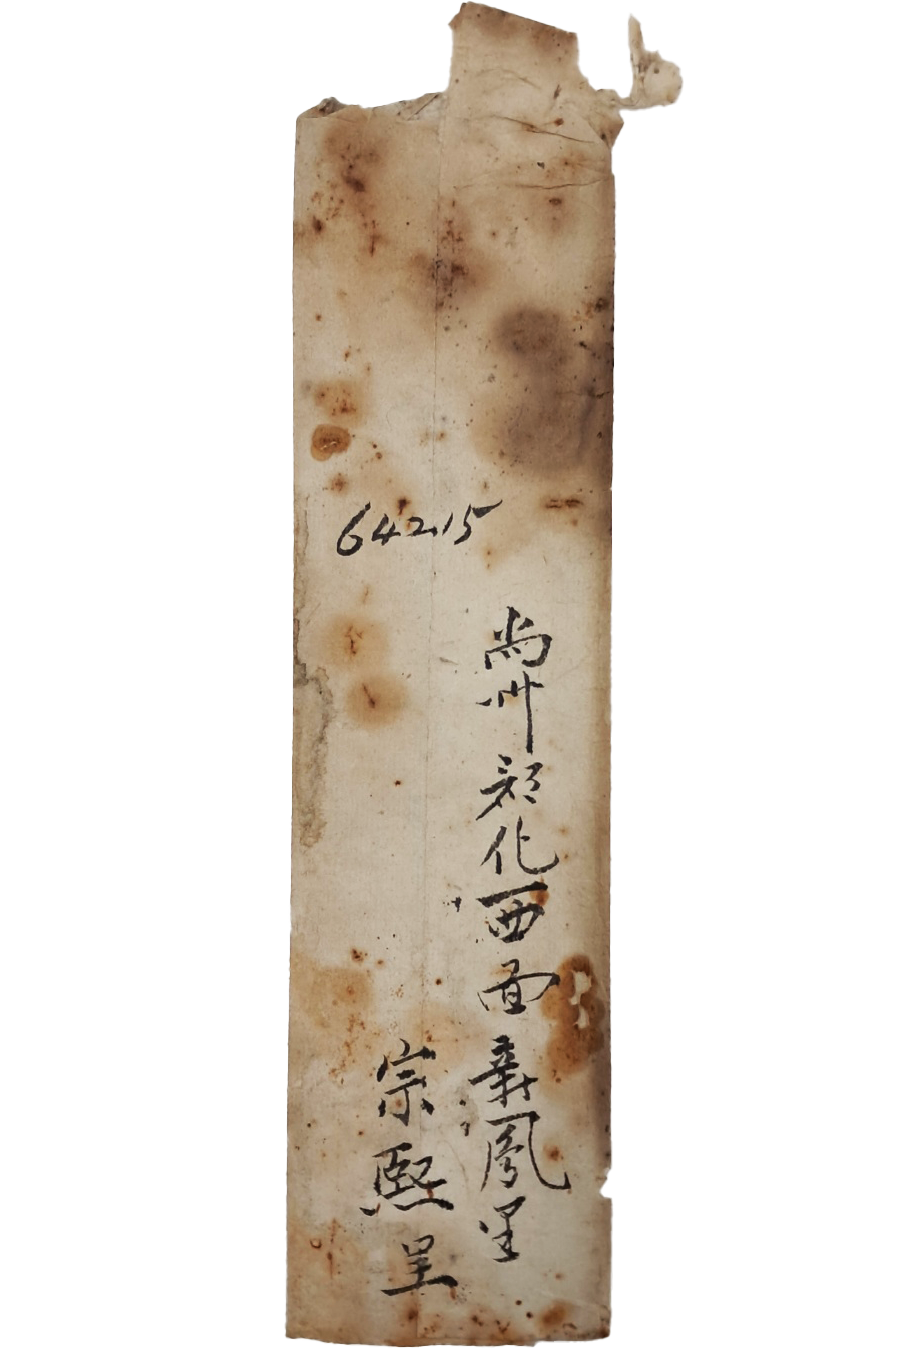 64215
尚州郡化西面新鳳里
宗熙呈